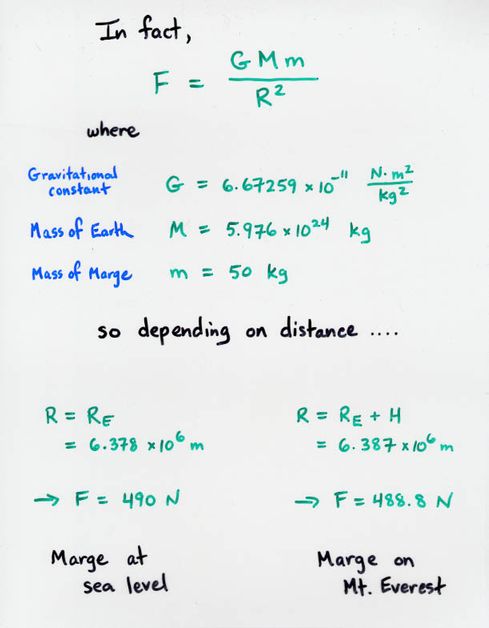 In fact,
F = G M m / R²
where
Gravitational constant G = 6.67259 × 10⁻¹¹ N·m² / kg²
Mass of Earth M = 5.976 × 10²⁴ kg
Mass of Marge m = 50 kg
so depending on distance ....
R = R_E
= 6.378 × 10⁶ m
→ F = 490 N
Marge at
sea level
R = R_E + H
= 6.387 × 10⁶ m
→ F = 488.8 N
Marge on
Mt. Everest